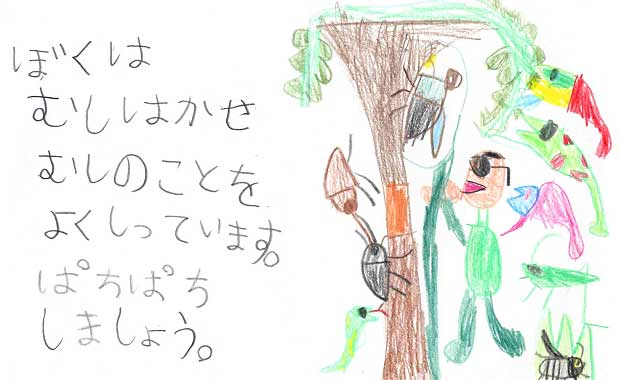 ぼくは
むしはかせ
むしのことを
よくしっています。
ぱちぱち
しましょう。